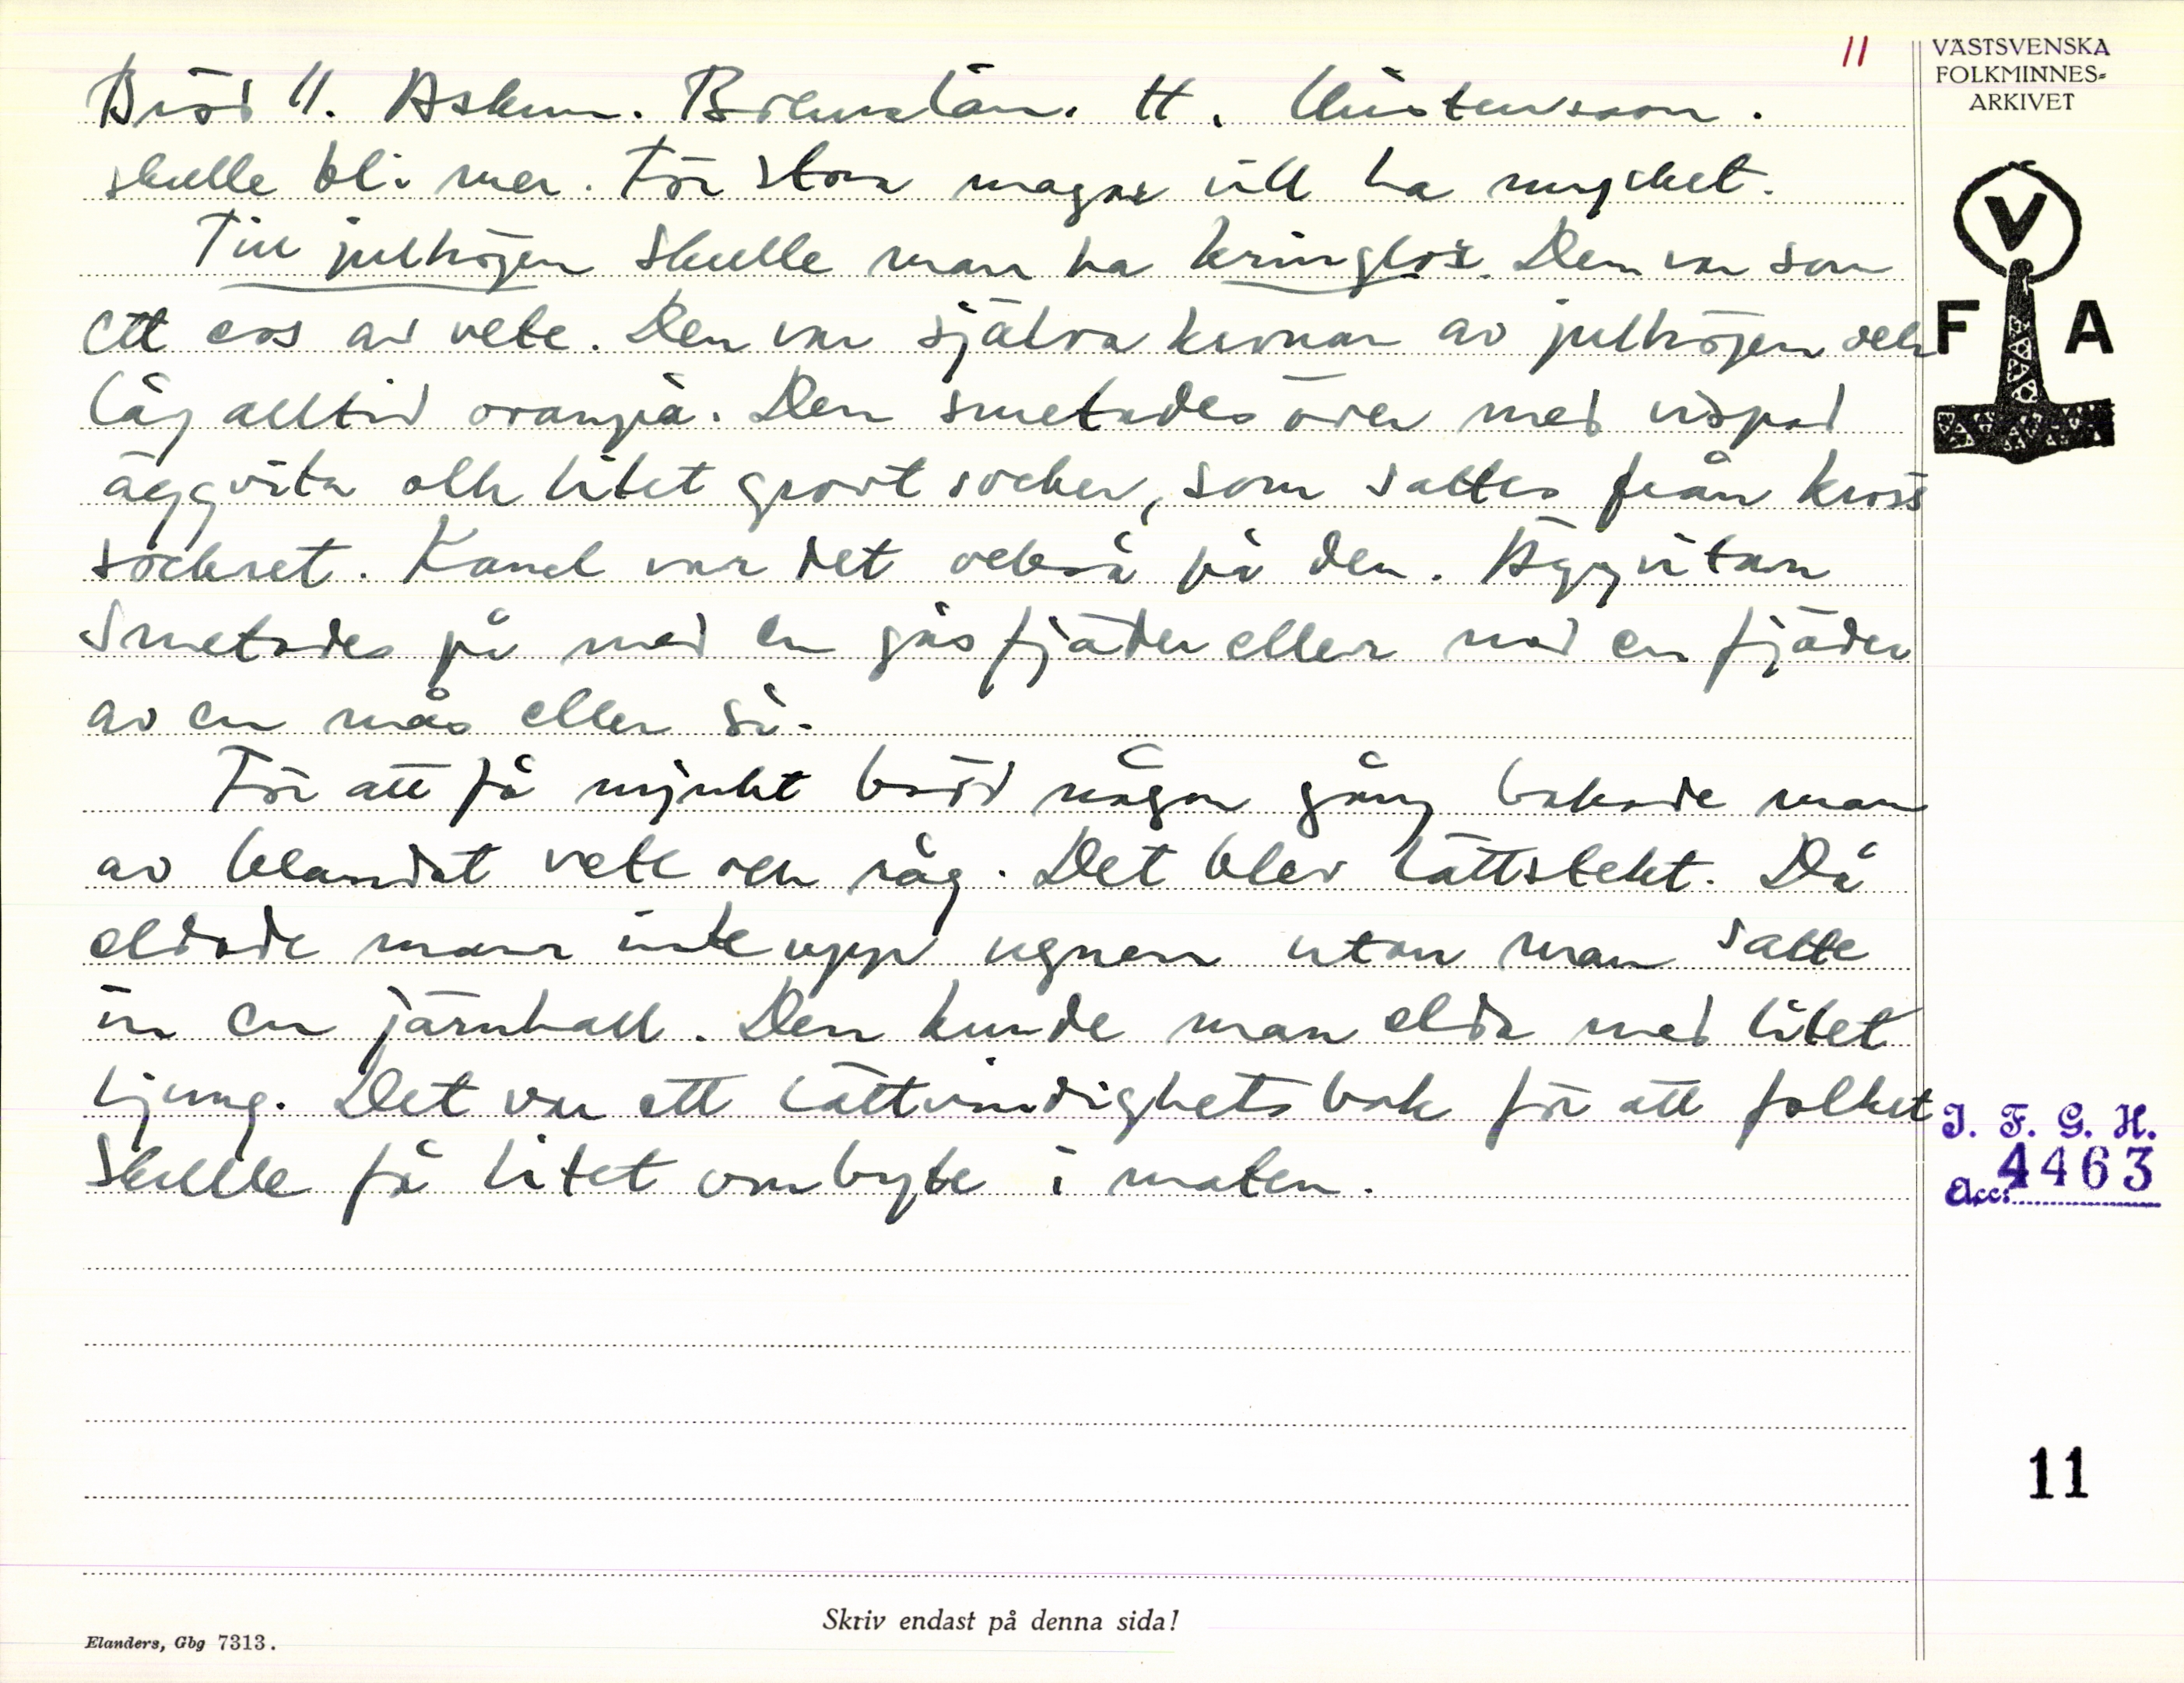 11
VÄSTSVENSKA
FOLKMINNES-
ARKIVET
Bröd 11. Askum. Bohuslän. H. Christensson.
skulle bli mer. För stora magar vill ha mycket.
Till julhögen skulle man ha kringlor. Den var som
ett av vete. Den var själva kronan av julhögen och
låg alltid ovanpå. Den smetades över med vispad
äggvita och litet grovt socker, som sattes från kross
sockret. Kanel var det också på den. Äggvitan
smetades på med en gåsfjäder eller med en fjäder
av en mås eller så.
För att få mjukt bröd någon gång bakade man
av blandat vete och råg. Det blev lättstekt. Då
eldade man inte upp ugnen utan man satte
in en järnhall. Den kunde man elda med litet
ljung. Det var ett lättvindighetsbak för att folket
skulle få litet ombyte i maten.
V
F A
I. F. G. H.
Acc: 4463
11
Skriv endast på denna sida!
Elanders, Gbg 7313.